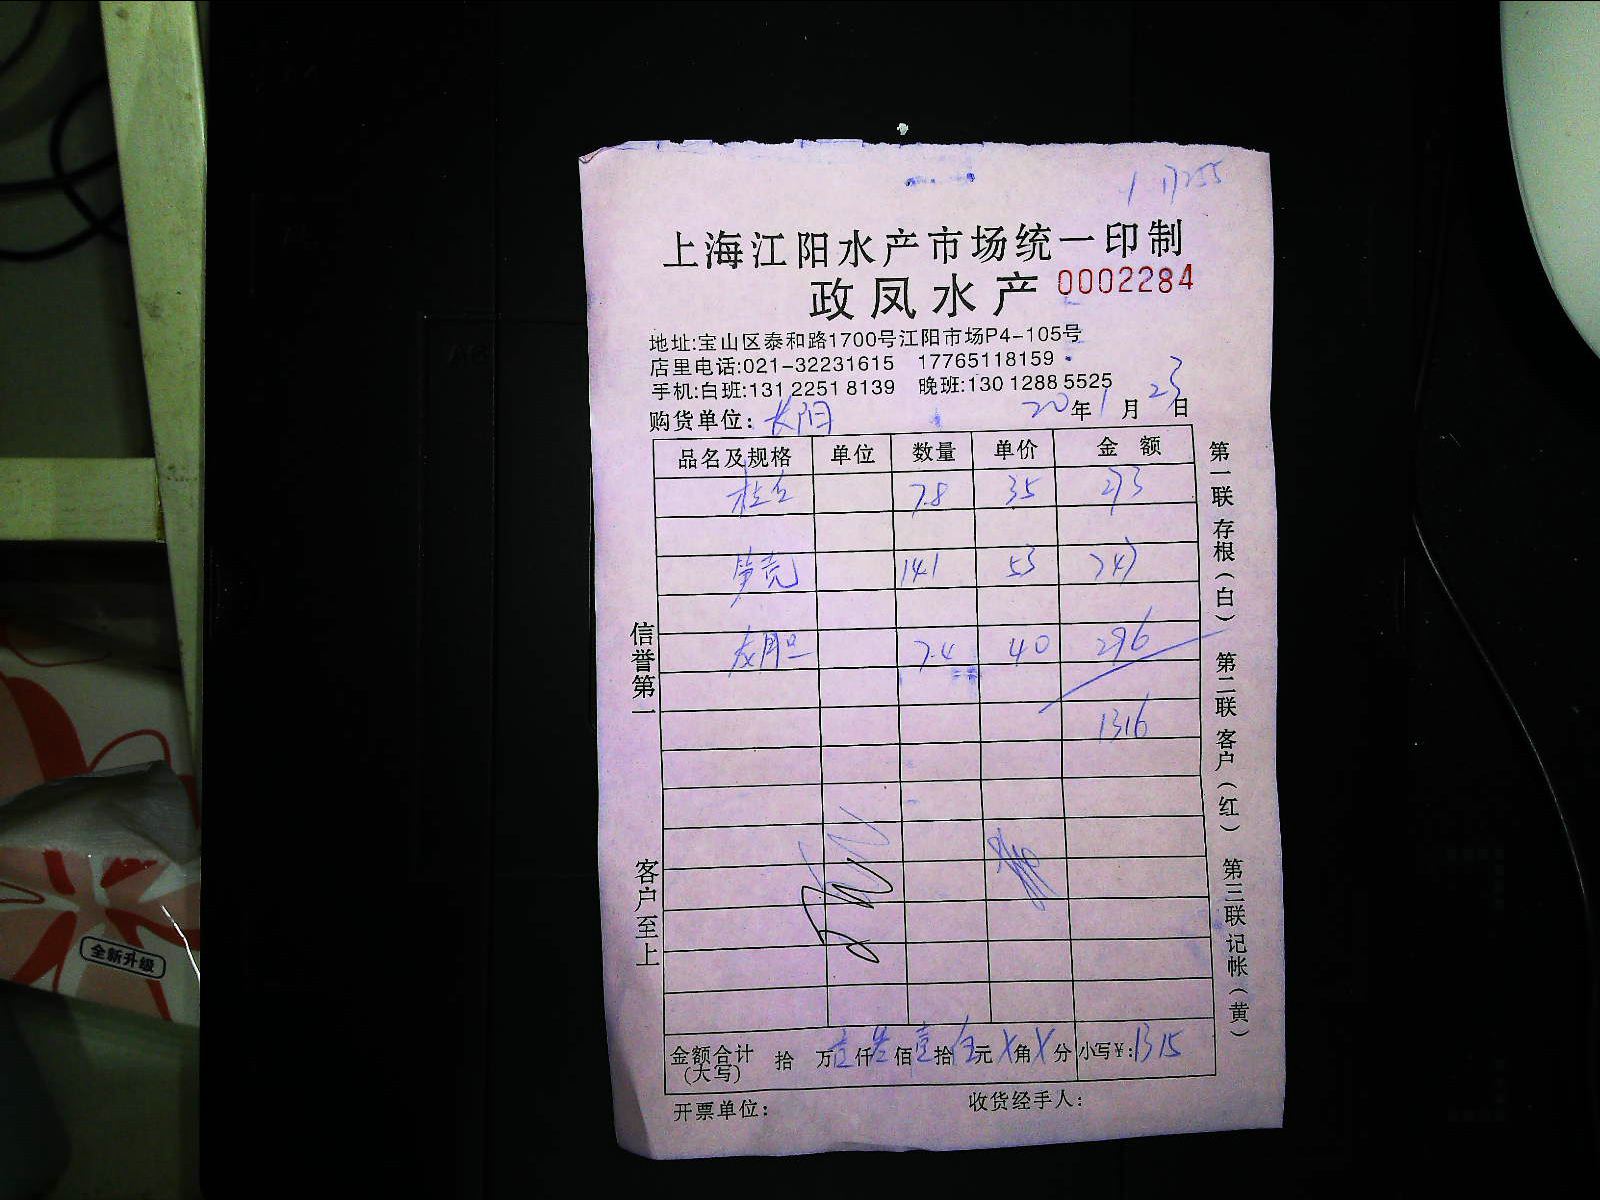 上海江阳水产市场统一印制
政凤水产 0002284
地址:宝山区泰和路1700号江阳市场P4-105号
店里电话:021-32231615 17765118159
手机:白班:131 2251 8139 晚班:130 1288 5525
购货单位: 长阳 20年1月23日
品名及规格 单位 数量 单价 金额
7.8 35 273
笋壳 141 53 747
7.4 40 296
1316
金额合计(大写) 拾 万壹仟叁佰壹拾伍元X角X分 小写¥:1315
开票单位: 收货经手人:
信誉第一
客户至上
第一联存根(白) 第二联客户(红) 第三联记帐(黄)
全新升级